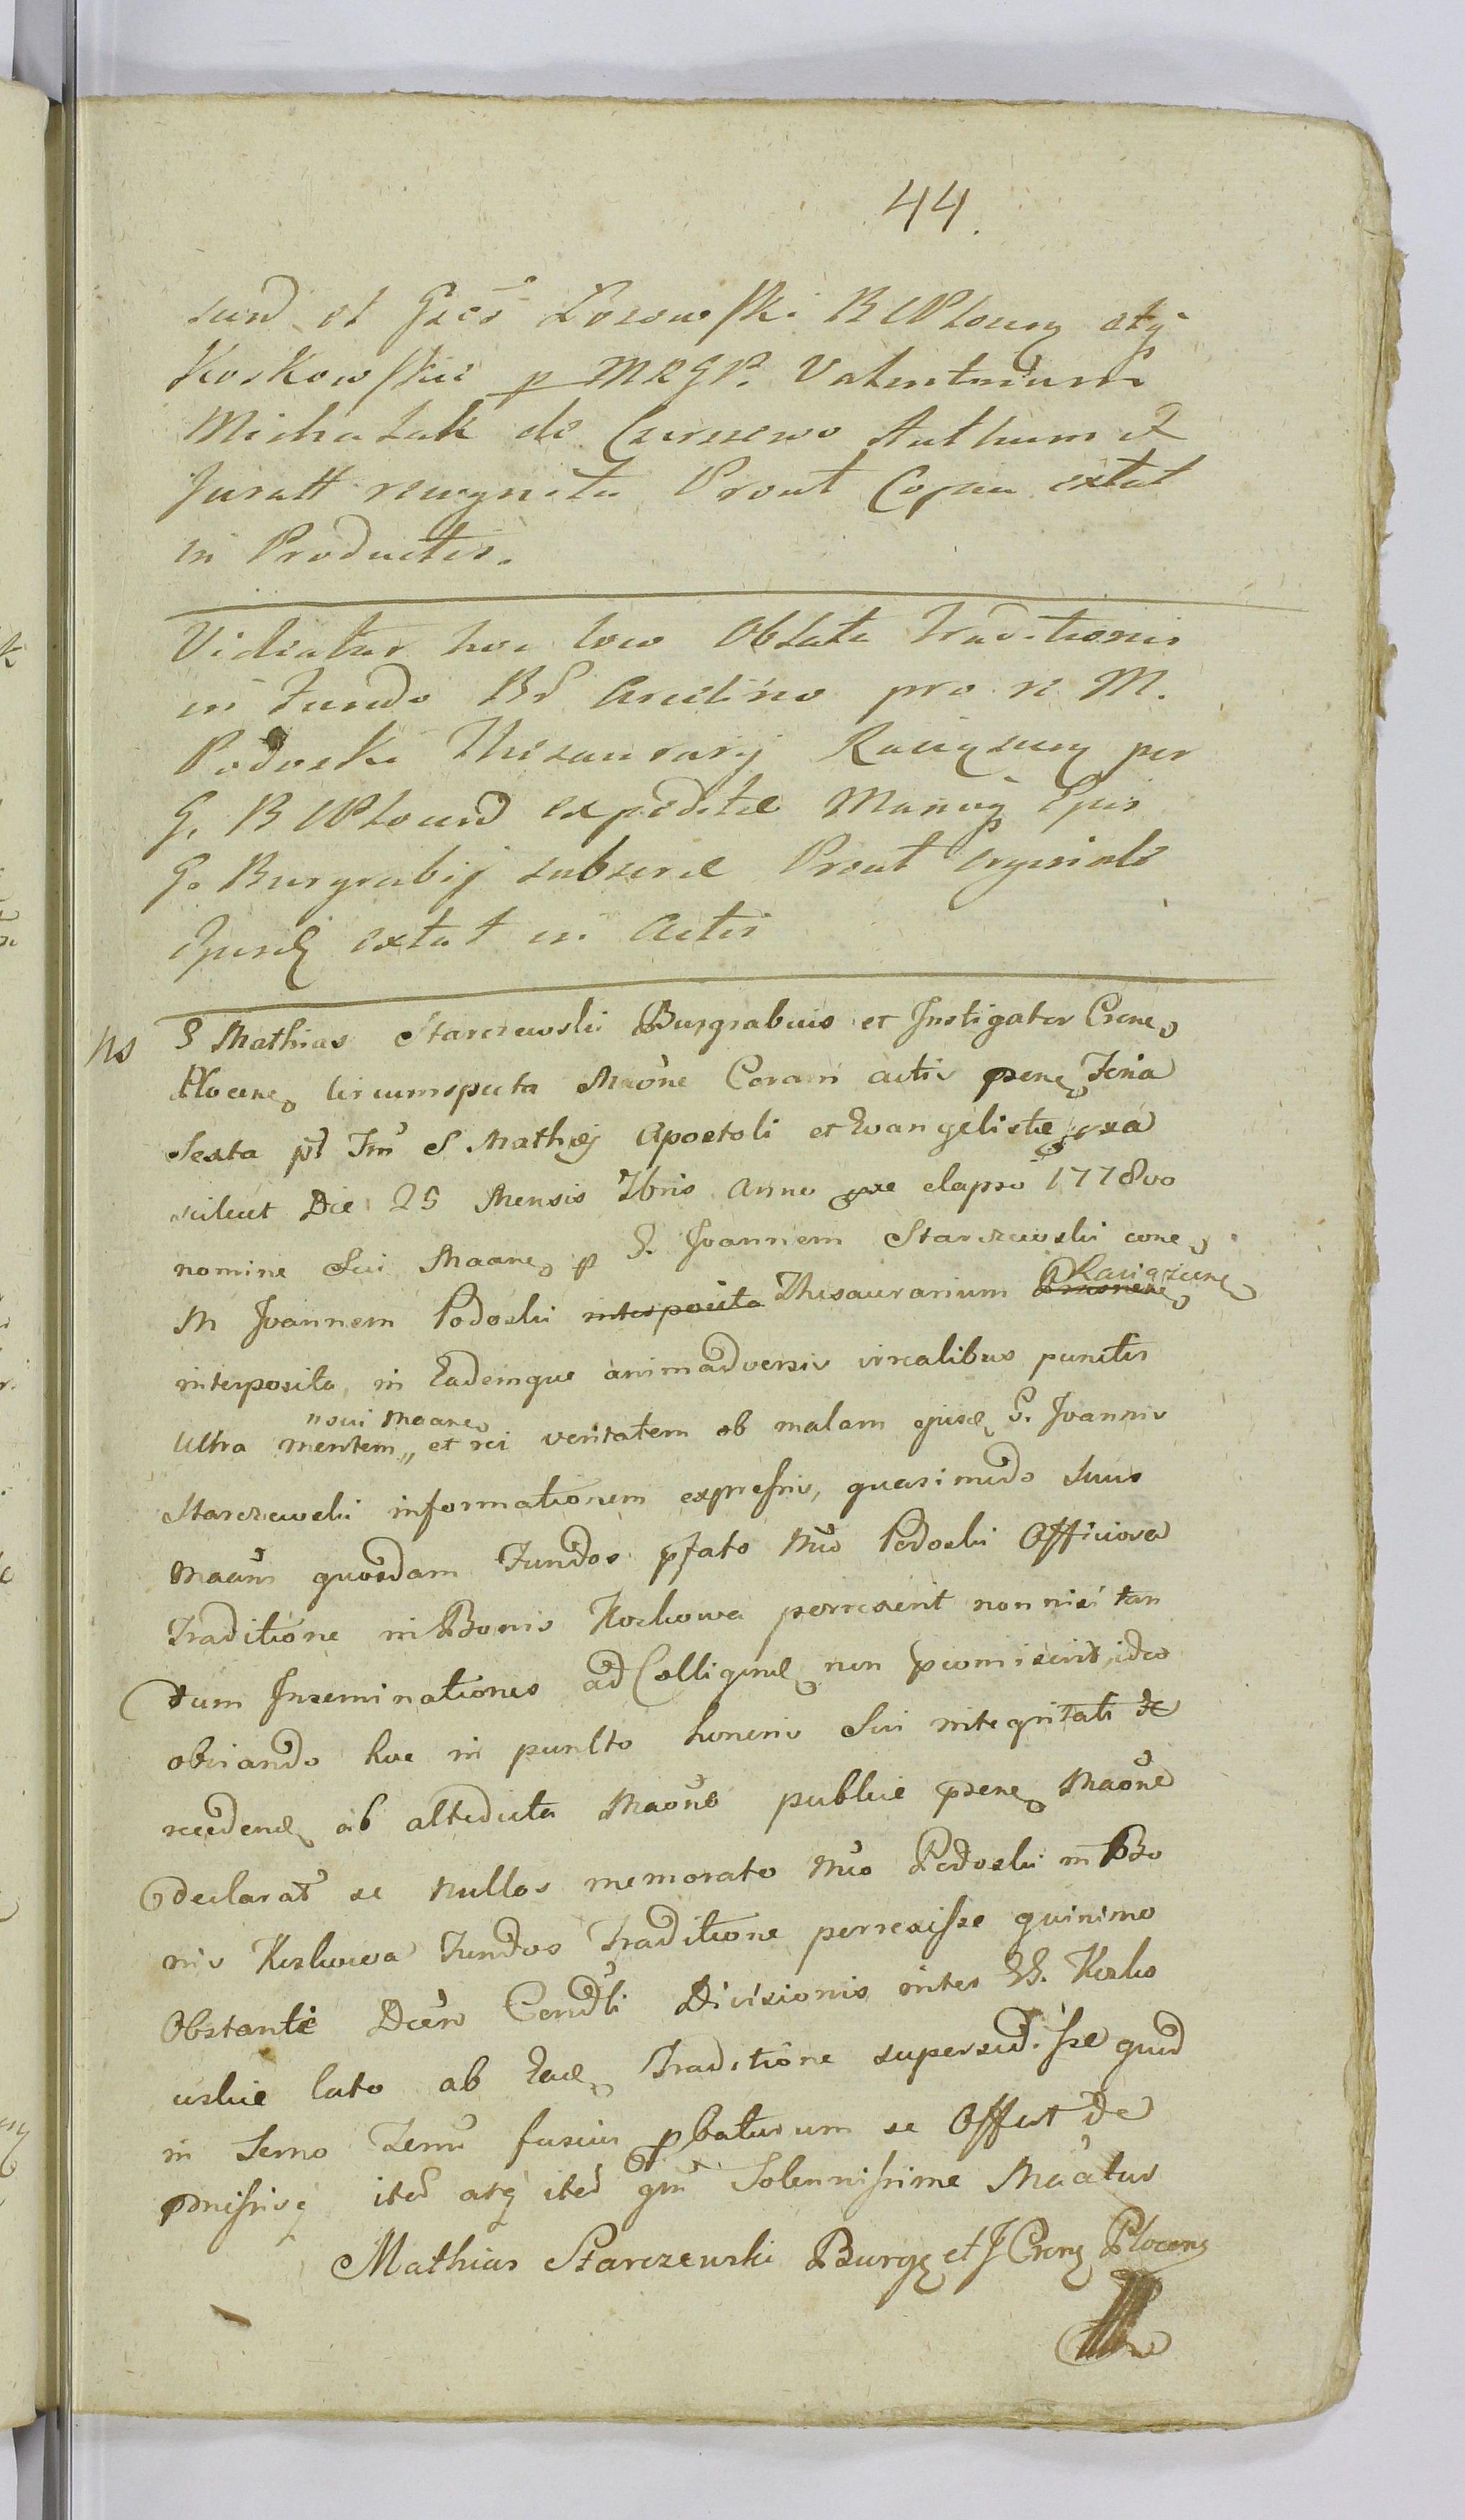 44.
et Gsos Łosowski B CPlocensq atq
Koskowskie p MRGP. Valentinum
Michalak de Czerniewo Authum et
Juratt recognita Prout Copia extat
in Productis.
Videatur hoc loco Oblata Traditionis
in Fundo Bd pro re M.
Podoski Thesaurarij Raciązensq per
G. B CPlocensd expeditae Manuq Epis
G. Burgrabij subscrae Prout Originale
Ejusdq extat in Actis
Ns G Mathias Starczewski Burgrabius et Instigator Crene
Plocene circumspecta Maone Coram actis prene Feria
Sexta pt Fm S Mathej Apostoli et Evangelistae
scilicet Die 25 Mensis 7bris Anno elapso 1778vo
nomine Sui Maane p G. Joannem Starczewski cone
M Joannem Podoski interposita Thesaurarium Raciązene
interposita, in Eademque animadversis irrealibus punctis
Ultra mentem,, et rei veritatem ob malam ejusd G. Joannis
nsui Maane
Starczewski informationem expressis, quasi modo Suus
Maans quosdam Fundos pfato Mco Podoski Officiosa
Traditione in Bonis Koskowa perrexerit non nisi tan
tum Inseminationes ad Colligend non promiserit, ideo
obviando hoc in puncto honoris Sui integritati et
recedend ab altedicta Maone publice prene Maone
declarat se nullos memorato Mco Podoski in Bo
nis Koskowa Fundos Traditione perrexisse quinimo
Obstante Dcen Condti Divisionis inter GG. Kosko
wskie lato ab Ead Traditione supersedisse quod
in Semo Temu fusius pbaturum se Offert De
pmissisq ited atq ited qm Solennissime Maatus
Mathias Starczewski Burgq et J Crenq Plocenq